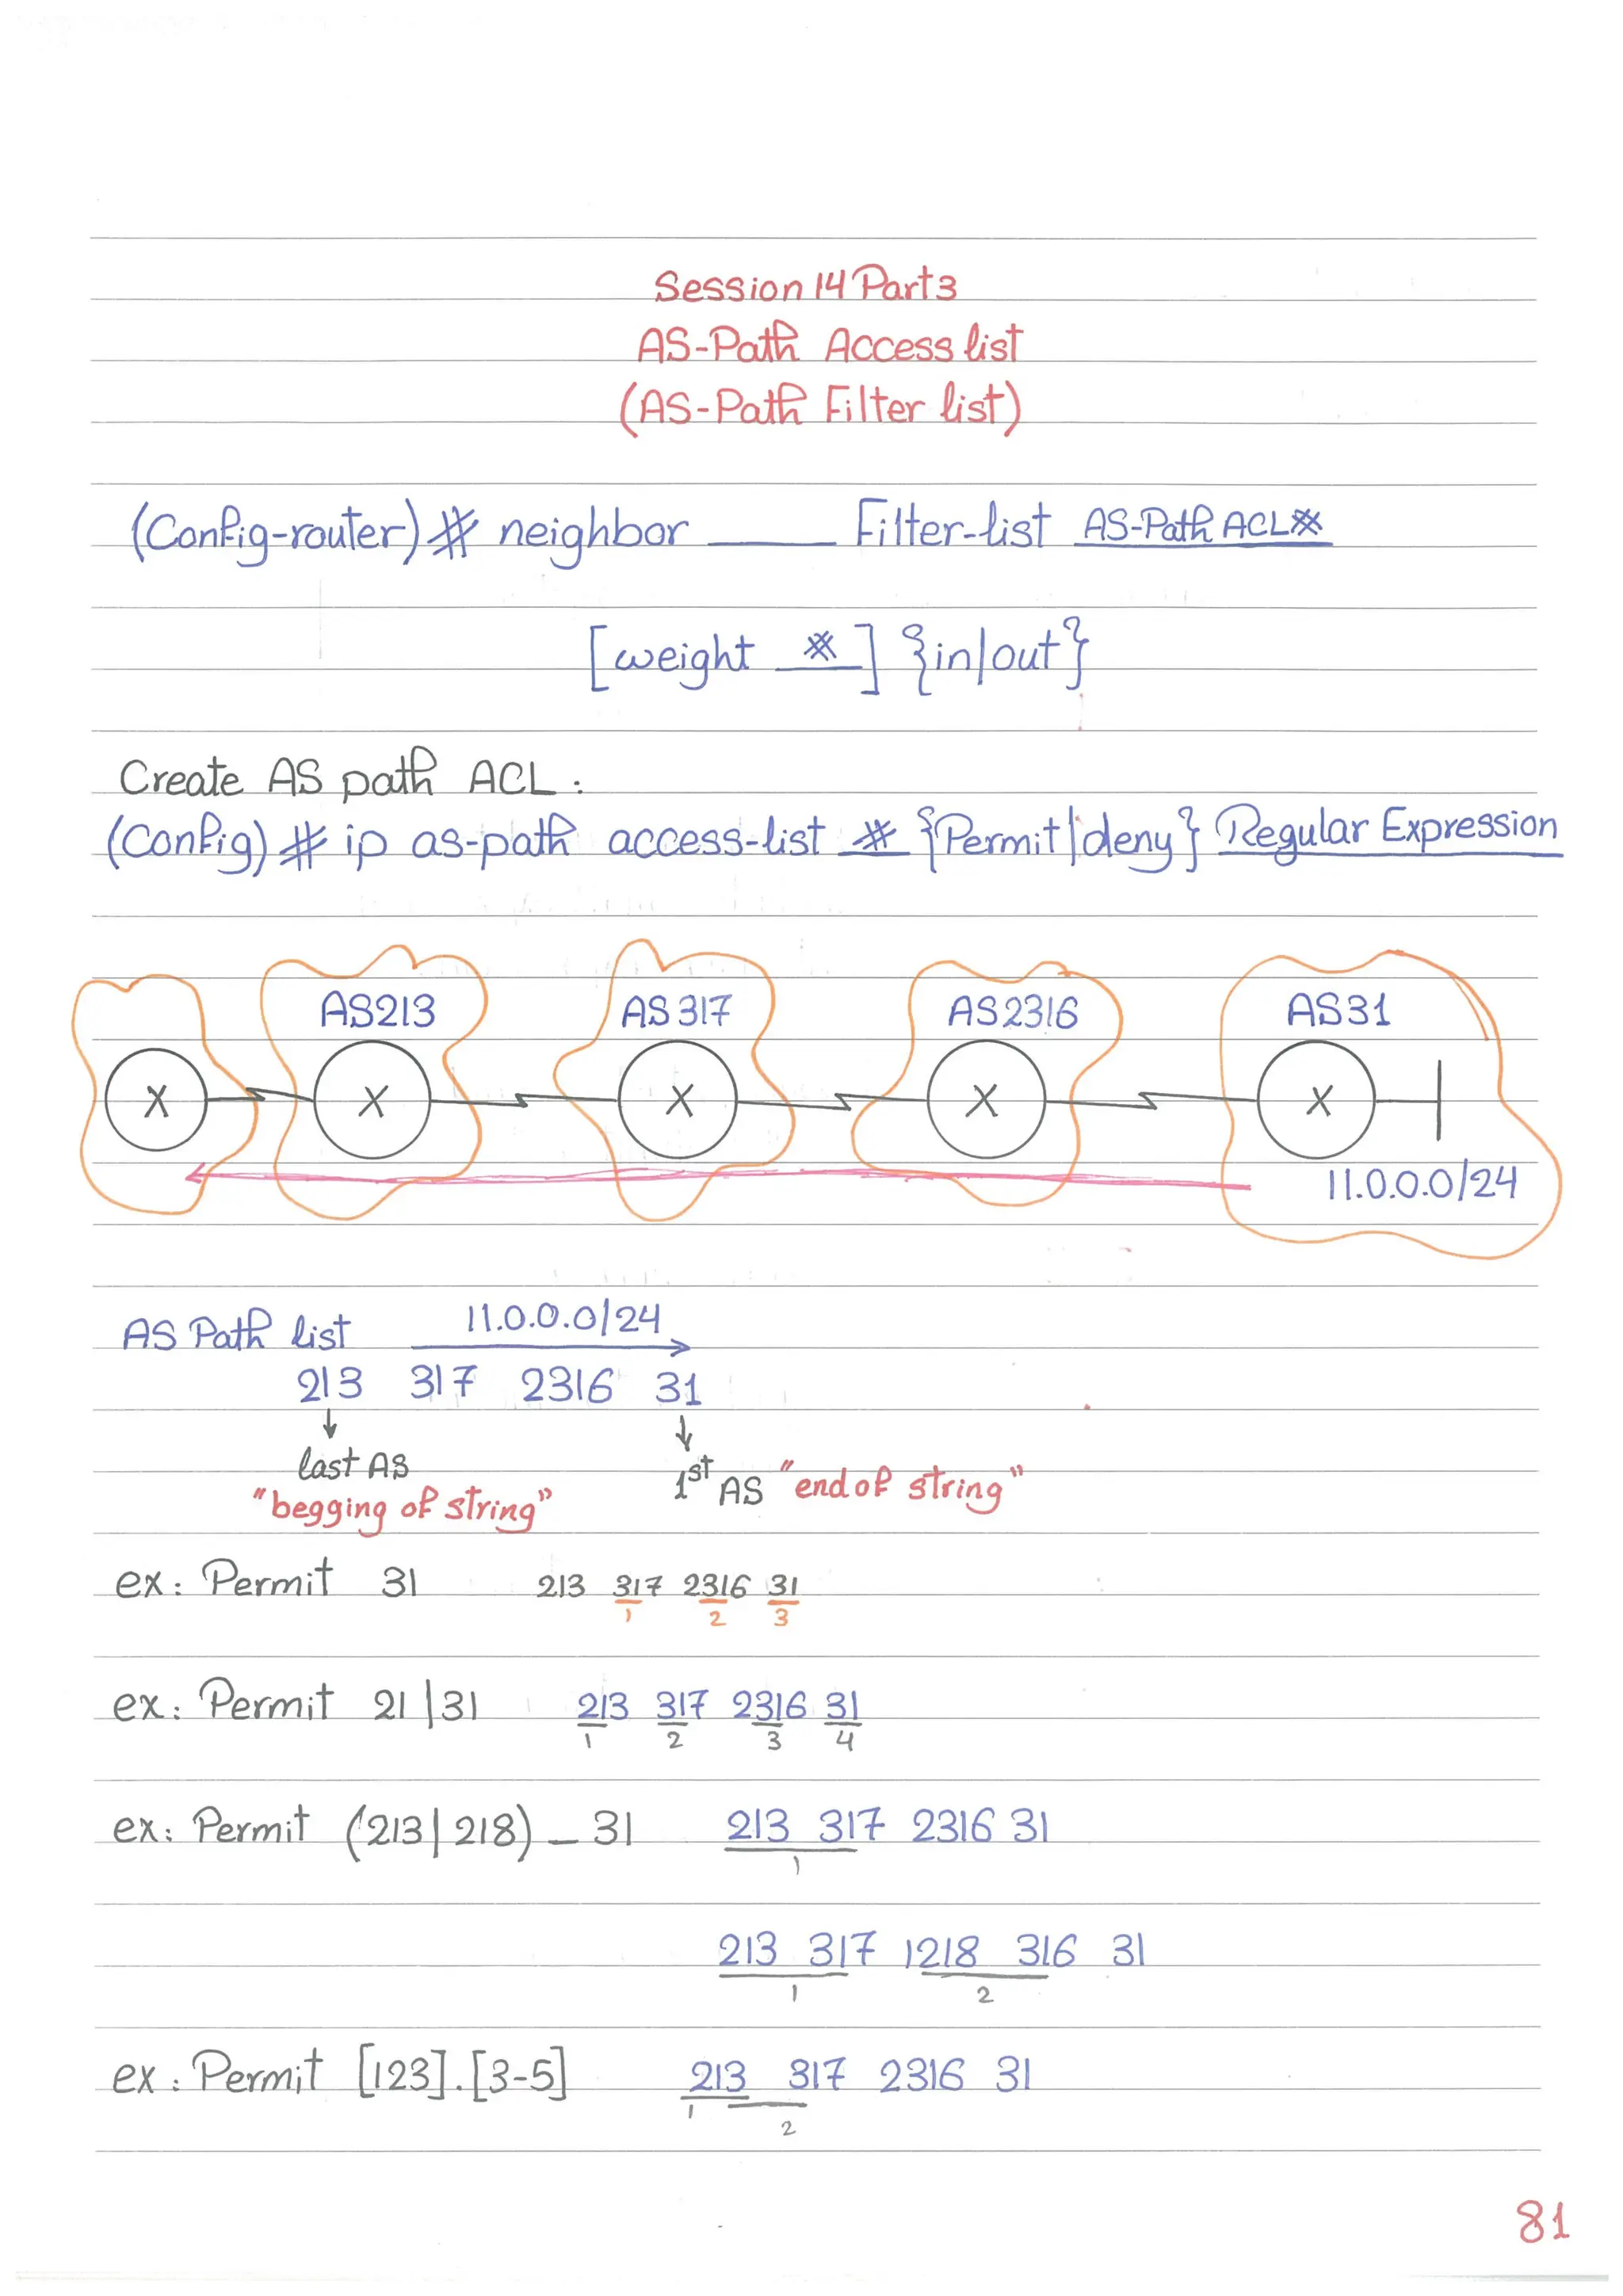 Session 14 Part 3
AS-Path Access list
(AS-Path Filter list)
(Config-router) # neighbor ____ Filter-list AS-Path ACL#
[weight # ] {in|out}
Create AS path ACL :
(Config) # ip as-path access-list # {Permit|deny} Regular Expression
AS213 AS 317 AS2316 AS31
X X X X X
11.0.0.0/24
AS Path list 11.0.0.0/24
213 317 2316 31
last AS 1st AS "end of string"
"begging of string"
ex: Permit 31 213 317 2316 31
1 2 3
ex: Permit 21|31 213 317 2316 31
1 2 3 4
ex: Permit (213|218) _ 31 213 317 2316 31
1
213 317 1218 316 31
1 2
ex: Permit [123].[3-5] 213 317 2316 31
1
2
81